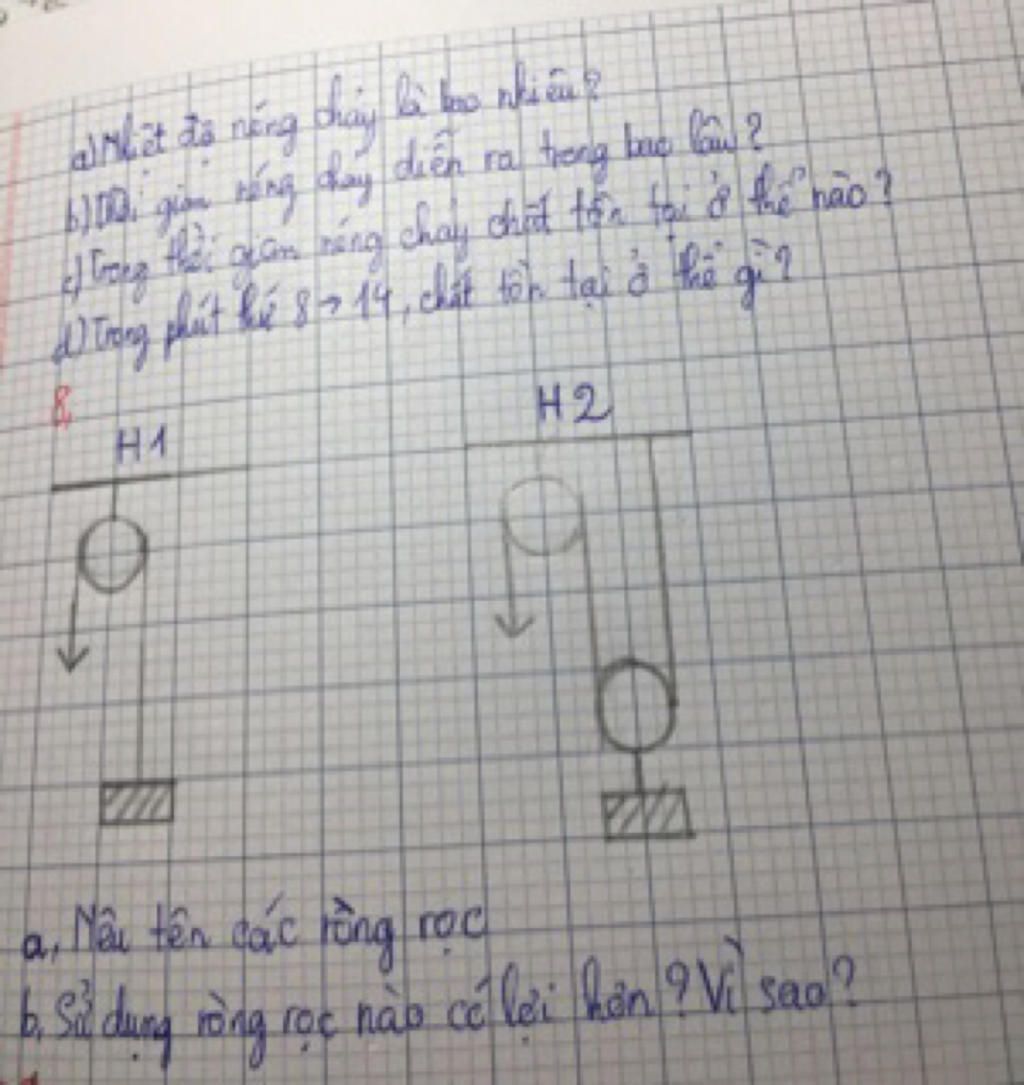 a) Nhiệt độ nóng chảy là bao nhiêu?
b) Thời gian nóng chảy diễn ra trong bao lâu?
c) Trong thời gian nóng chảy chất tồn tại ở thể nào?
d) Trong phút thứ 8 → 14, chất tồn tại ở thể gì?
8,
H1
H2
a, Nêu tên các ròng rọc
b, Sử dụng ròng rọc nào có lợi hơn? Vì sao?